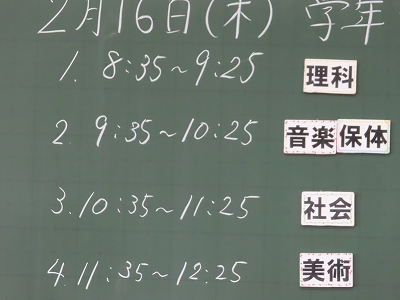 2月16日(木) 学年
1. 8:35~9:25 理科
2. 9:35~10:25 音楽 保体
3. 10:35~11:25 社会
4. 11:35~12:25 美術